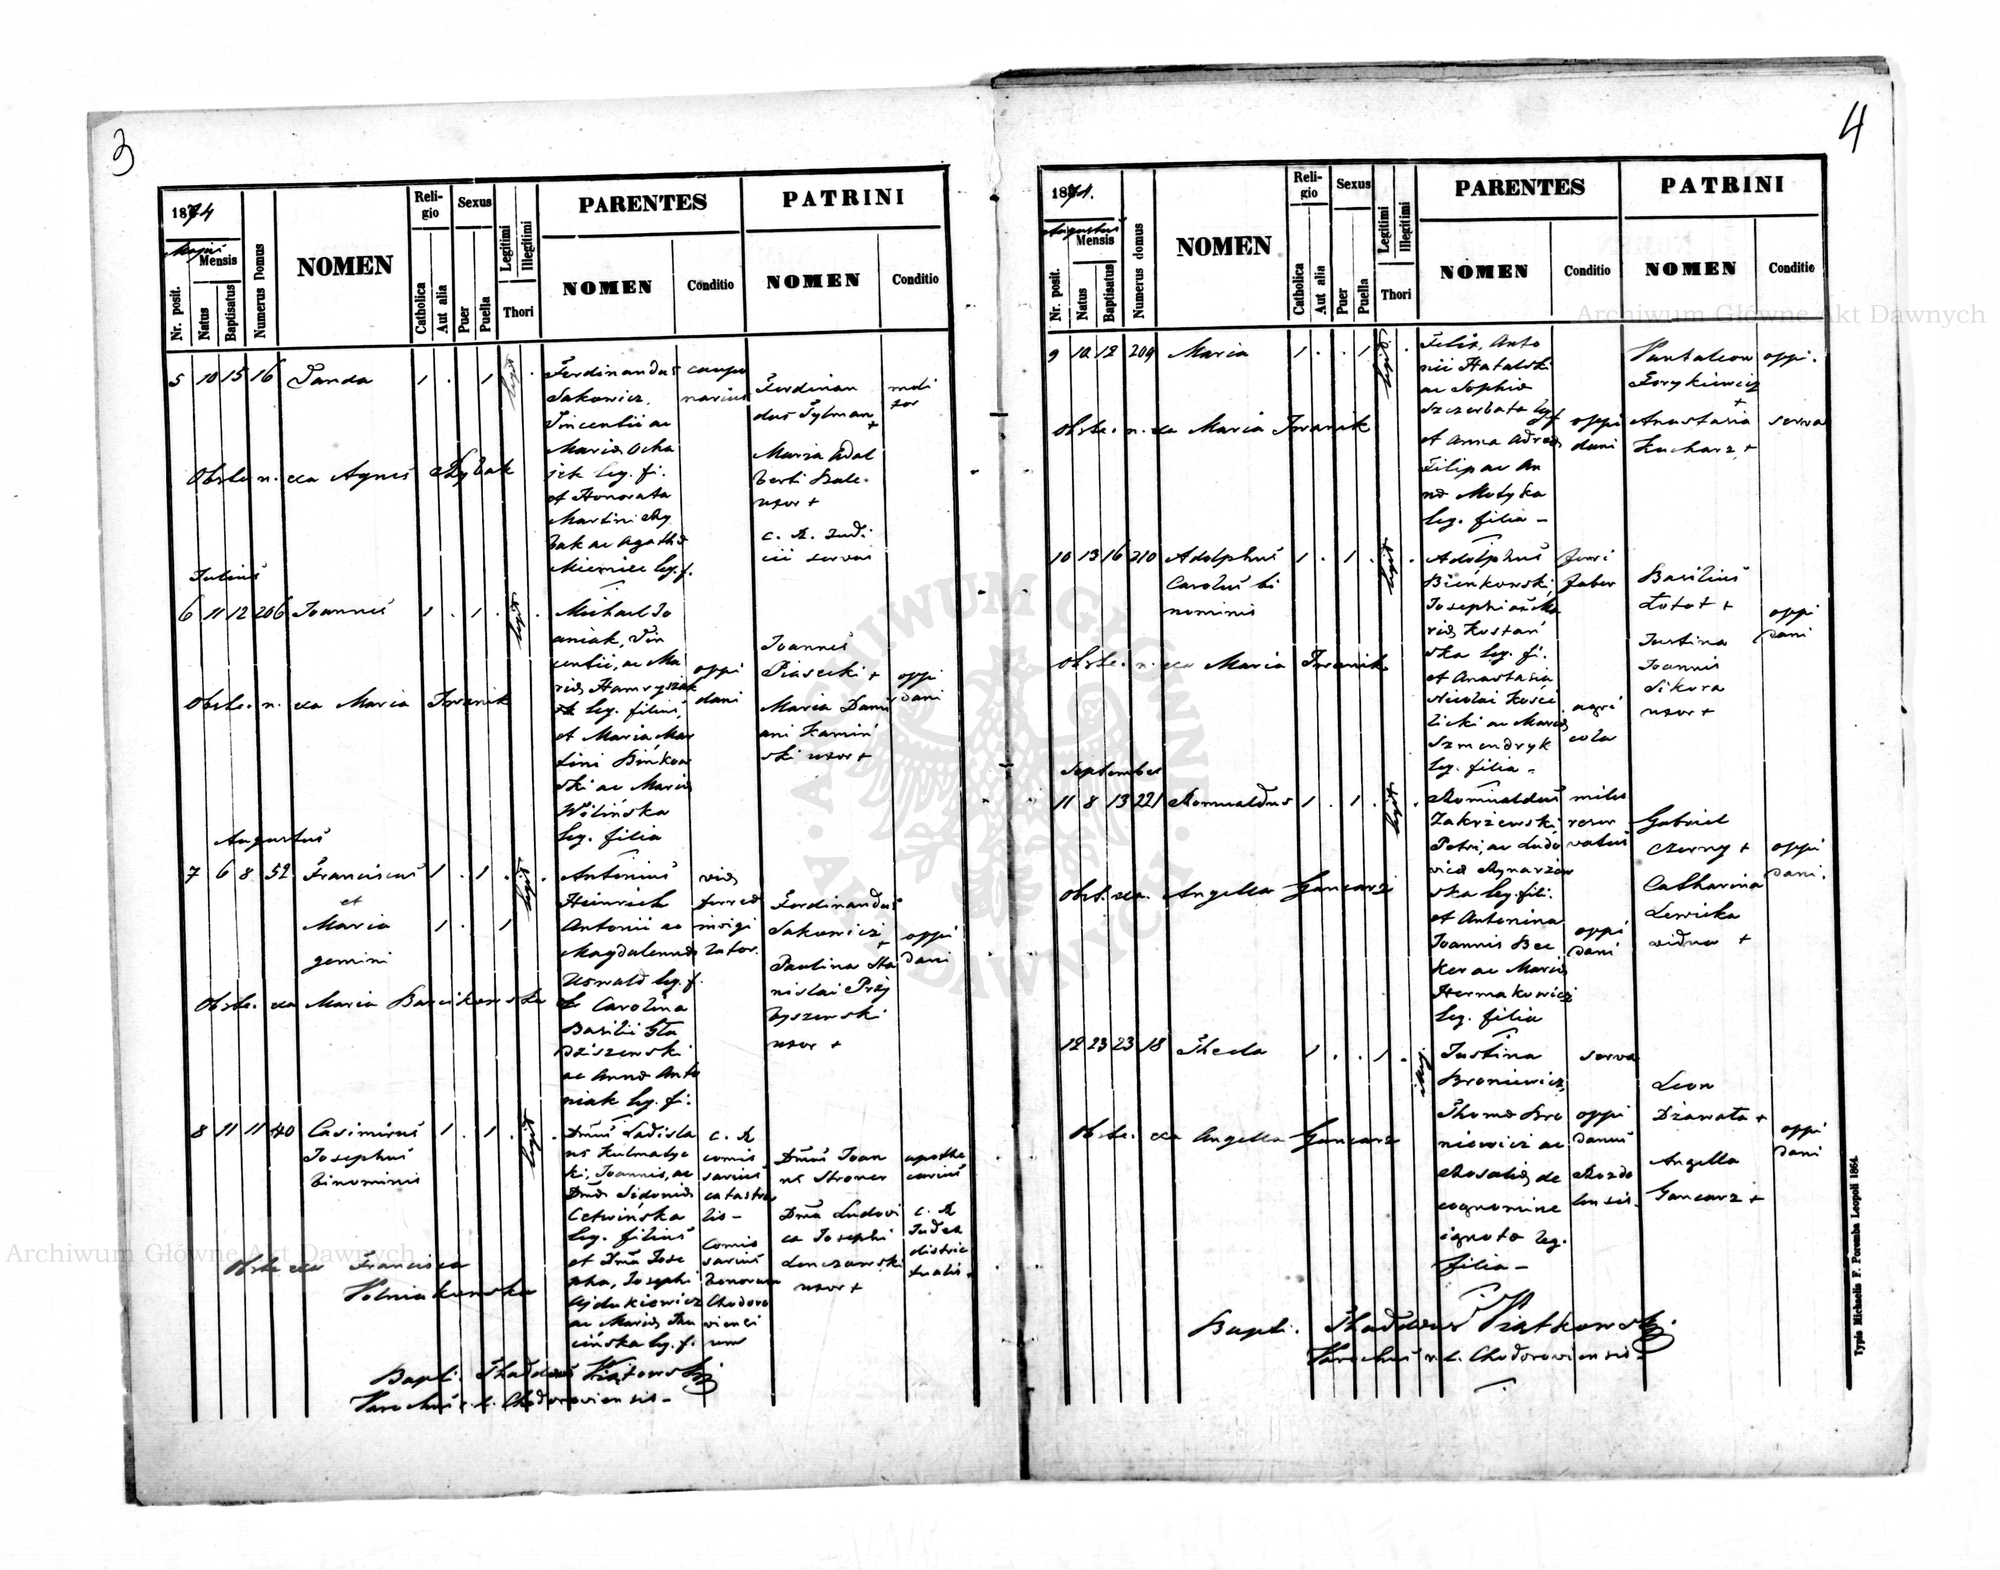 3
1874
Majus
Mensis
Nr. posit.
Natus
Baptisatus
Numerus Domus
NOMEN
Reli-
gio
Catholica
Aut alia
Sexus
Puer
Puella
Legitimi
Illegitimi
Thori
PARENTES
NOMEN
Conditio
PATRINI
NOMEN
Conditio
5 10 15 16 Vanda 1 . 1 legit
Ferdinandus
Sakowicz,
Vincentii ac
Leg. fi.
et Honorata
Martini Ry
bak ac Agatha
leg. f.
caupo
narius
Ferdinan
dus Tylman
+
Maria Adal
berti
uxor +
c. R. Judi
cii servus
Obste. n. exa Agnes Rybak
Julius
6 11 12 206 Joannes 1 . 1 . legit .
Michael Jo
aniak, Vin
centii, ac Ma
ria
leg. filius,
et Maria Mar
tini Bińkow
ski ac Maria
Wolińska
leg. filia
oppi
dani
Joannes
Piasecki +
Maria Dami
ani Kamiń
ski uxor +
oppi
dani
Obste. n. exa Maria Iwanik
Augustus
7 6 8 52 Franciscus 1 . 1 . legit .
et
Maria 1 . 1
gemini
Antonius
Heinrich
Antonii ac
Magdalena
Oswald leg. f.
et Carolina
Basilii Gła
dziszewski
ac Anna Anto
niak leg. fi.
via
ferrea
invigi
lator.
Ferdinandus
Sakowicz
+
Paulina Sta
nislai Przy
byszewski
uxor +
oppi
dani
Obste. exa Maria Barcikowska
8 11 11 140 Casimirus 1 . 1 . legit .
Josephus
binominis
Dnus Ladisla
us Kulmatyc
ki, Joannis, ac
Dna Sidonia
Cetwińska
leg. filius
et Dna Jose
pha, Josephi
Ajdukiewicz
ac Maria
leg. f.
c. R
comis
sarius
catastra
lis -
comis
sarius
bonorum
Chodoro
viensi
um
Dnus Joan
nes Stroner
Dna Ludovi
ca Josephi
Lenczewski
uxor +
apothe
carius
c. R
Judex
distric
tualis +
Obste exa Francisca
Wolniakowska
Bapti. Thaddeus Piątkowski
Parochus r. l. Chodoroviensis -
4
1874.
Augustus
Mensis
Nr. posit.
Natus
Baptisatus
Numerus domus
NOMEN
Reli-
gio
Catholica
Aut alia
Sexus
Puer
Puella
Legitimi
Illegitimi
Thori
PARENTES
NOMEN
Conditio
PATRINI
NOMEN
Conditio
9 10 12 209 Maria 1 . . 1 legit .
Felix, Anto
nii Hatalski
ac Sophia
Szczerbata leg. f.
et Anna Adrea
Filip ac An
na Motyka
leg. filia -
oppi
dani
Pantaleon
Forykiewicz
+
Anastasia
Kucharz +
oppi.
serva
Obste. n. exa Maria Iwanik
10 13 16 210 Adolphus 1 . 1 . legit .
Carolus bi
nominis
Adolphus
Bieńkowski,
Josephi ac Ma
ria Kostań
ska leg. fi.
et Anastasia
Nicolai Kości
licki ac Maria
Szmendryk
leg. filia -
ferri
faber
agri
cola
Basilius
Lotot +
Justina
Joannis
Sikora
uxor +
oppi
dani
Obste. n. exa Maria Iwanik
September
11 8 13 221 Romualdus 1 . 1 . legit .
Romualdus
Zakrzewski
Petri, ac Ludo
vica Rynarzew
ska leg. fili.
et Antonina
Joannis Bec
ker ac Maria
Hermakowicz
leg. filia
miles
reser
vatus
oppi
dani
Gabriel
Czerny +
Catharina
Lewicka
vidua +
oppi
dani.
Obst. exa. Angella Gancarz
12 23 23 18 Thecla 1 . . 1 .
Justina
Broniewicz,
Thoma Bro
niewicz ac
Rosalia de
cognomine
ignoto leg.
filia -
serva
oppi
danus
Rozdo
lensis.
Leon
Dżawała +
Angella
Gancarz +
oppi
dani
Obste. exa Angella Gancarz
Bapti. Thaddeus Piątkowski.
Parochus r. l. Chodoroviensis -
Typis Michaelis F. Poremba Leopoli 1864.
Archiwum Główne Akt Dawnych
Archiwum Główne Akt Dawnych
ARCHIWUM GŁÓWNE · AKT DAWNYCH ·